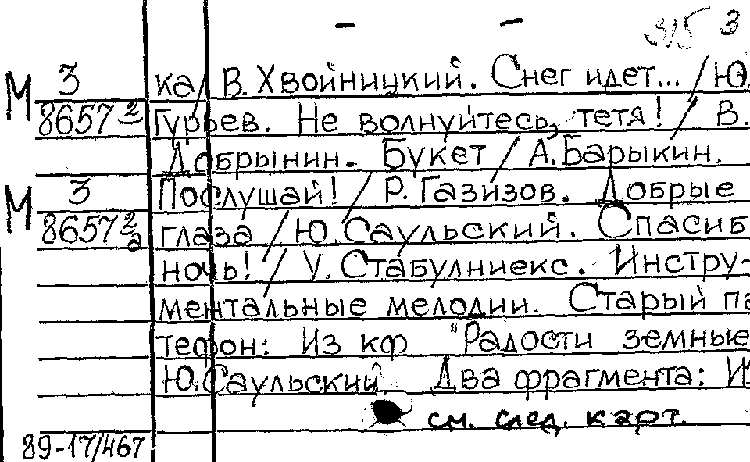 315 3
М 3 ка/ В. Хвойницкий. Снег идет... / Ю.
8657 2 Гурьев. Не волнуйтесь, тетя! / В.
Добрынин. Букет / А. Барыкин.
М 3 Послушай! / Р. Газизов. Добрые
8657 2а глаза / Ю. Саульский. Спасиб
ночь! / У. Стабулниекс. Инстру-
ментальные мелодии. Старый па
тефон: Из кф "Радости земные
Ю. Саульский. Два фрагмента: И
см. след. карт.
89-17/467